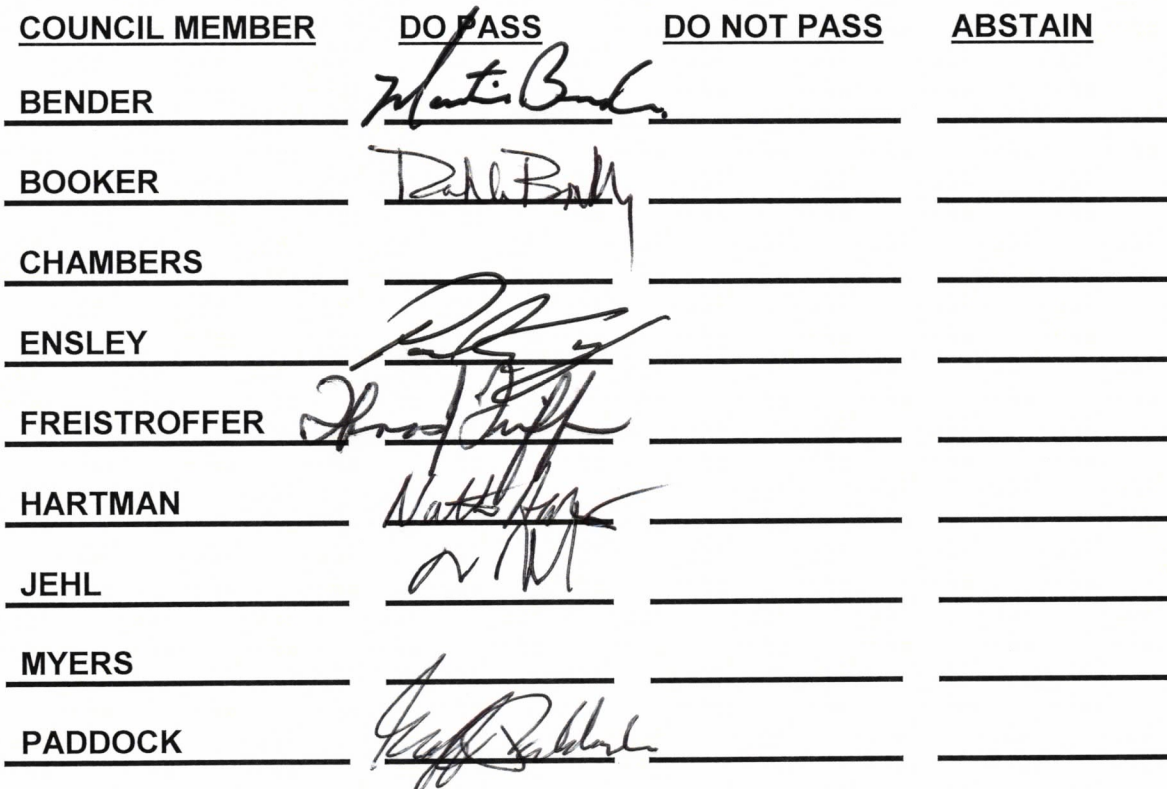 COUNCIL MEMBER DO PASS DO NOT PASS ABSTAIN
BENDER Martin Bender
BOOKER
CHAMBERS
ENSLEY
FREISTROFFER
HARTMAN
JEHL
MYERS
PADDOCK Geoff Paddock